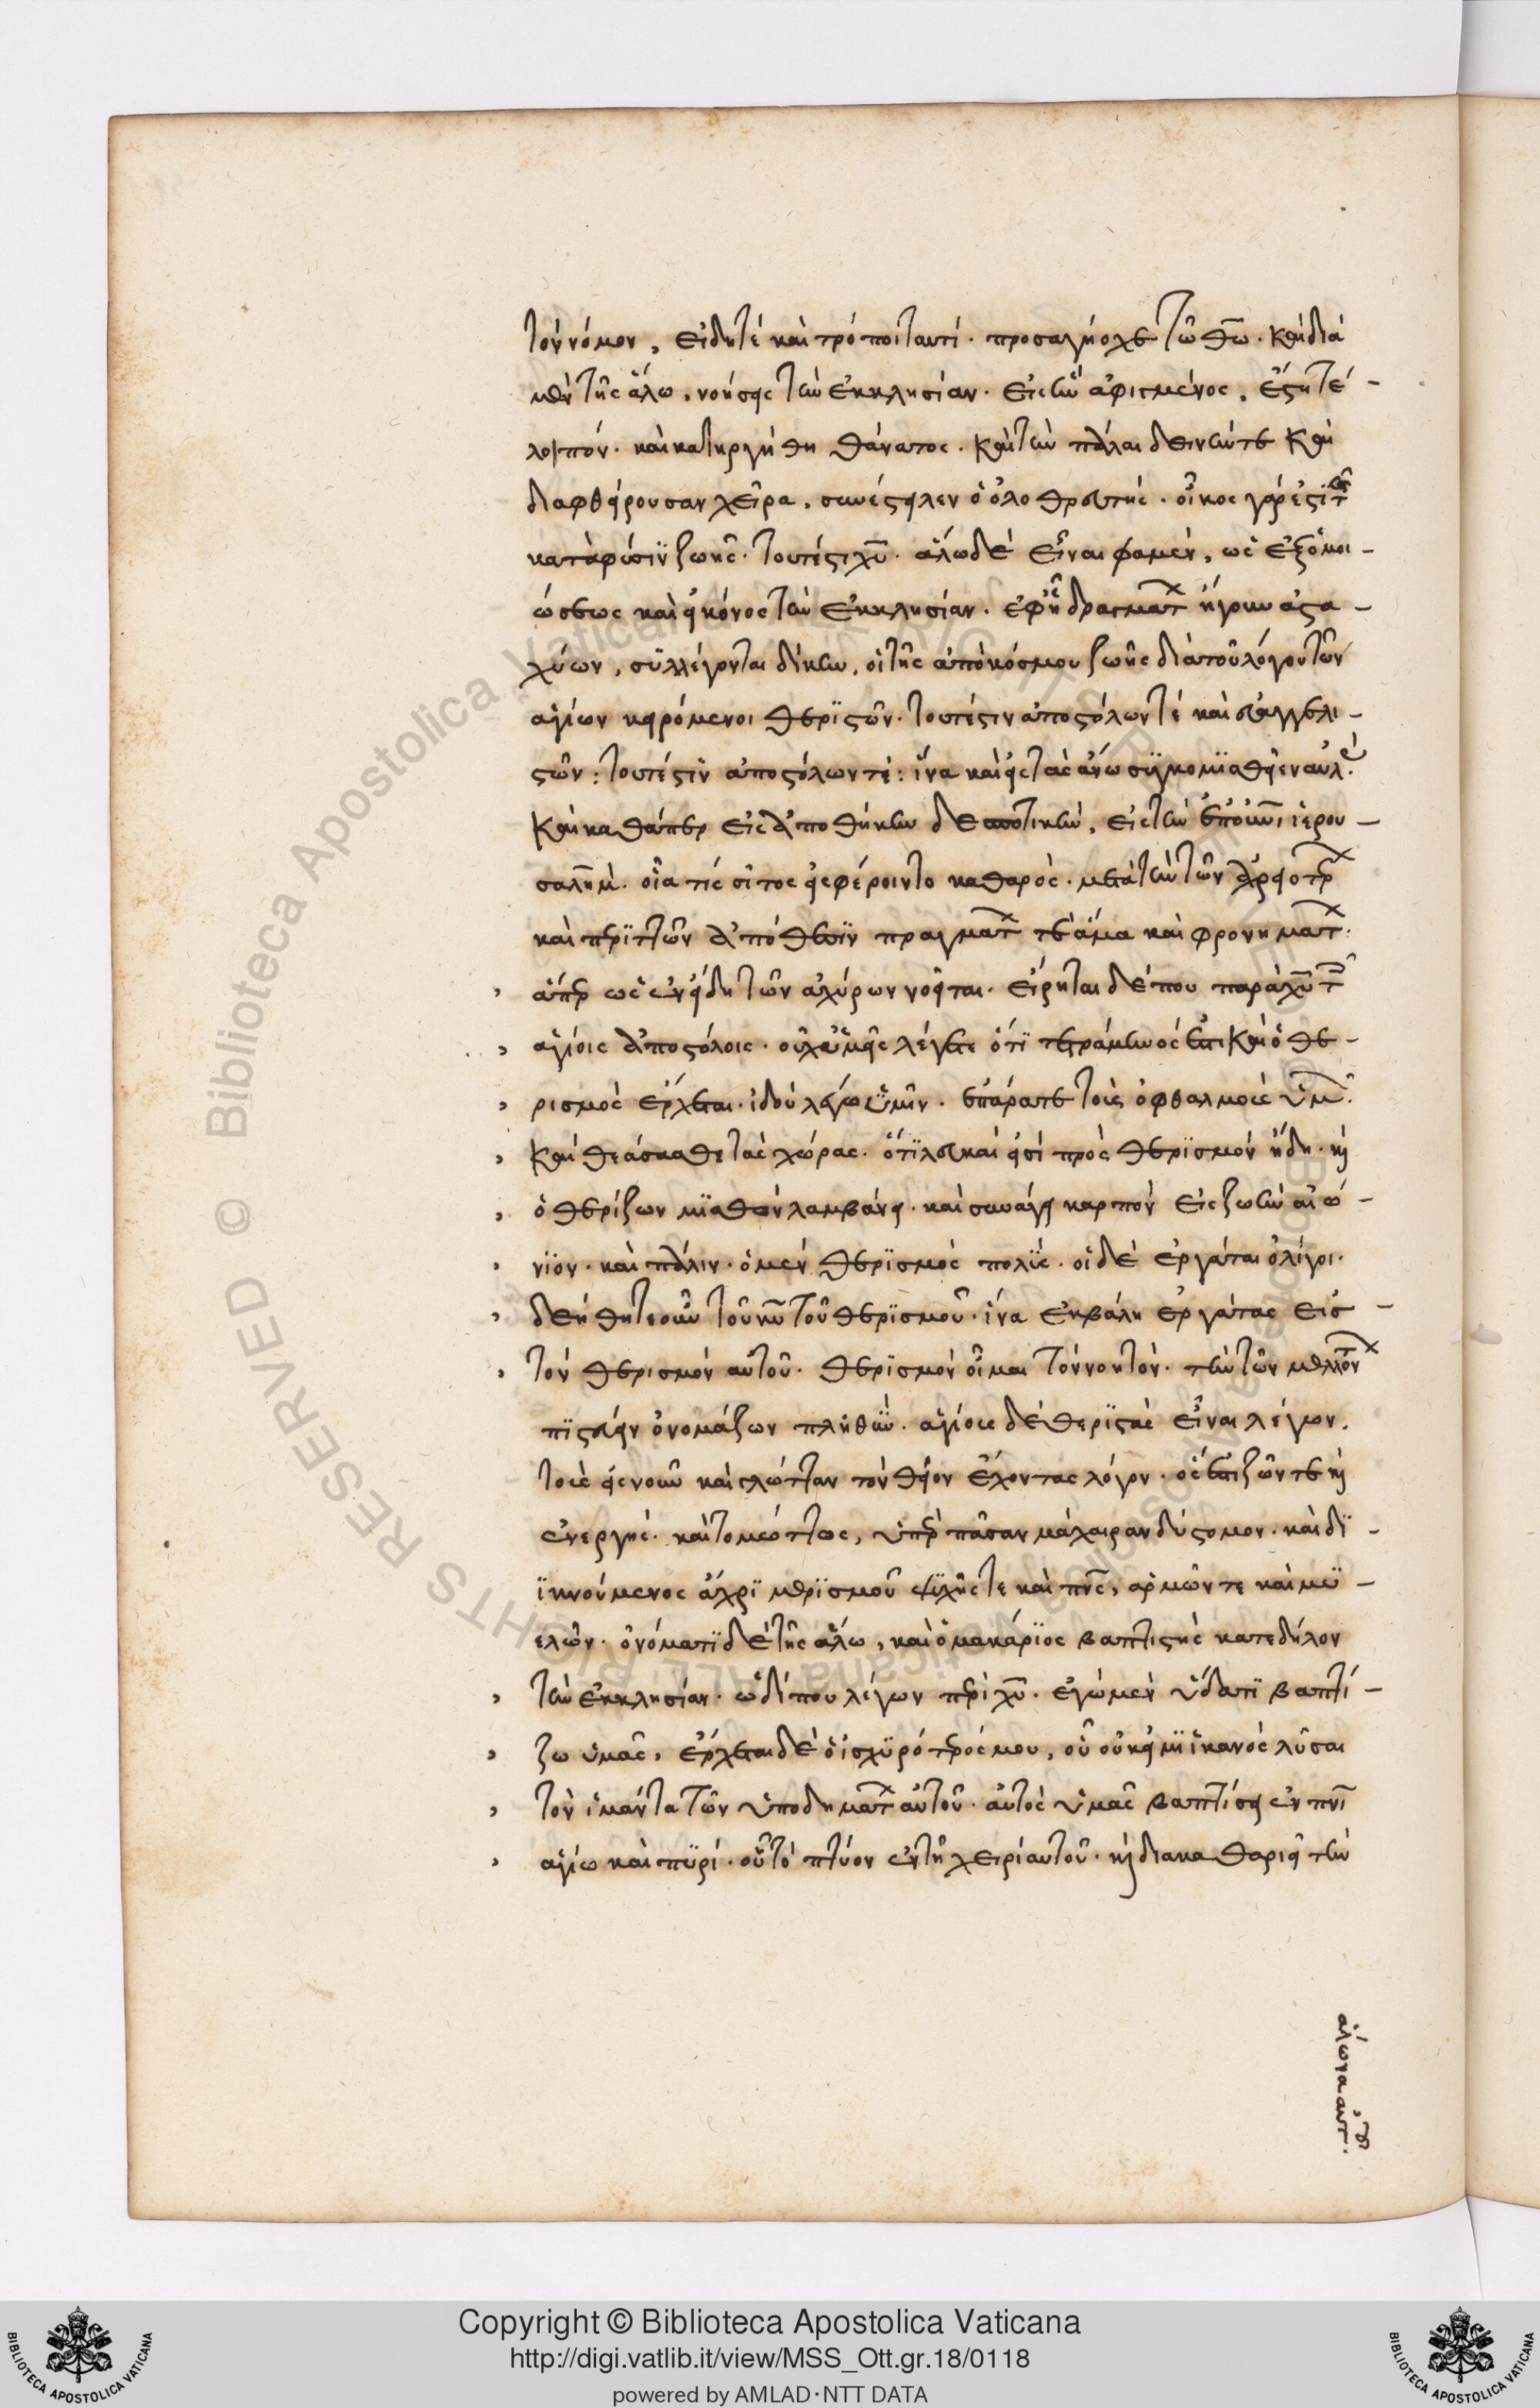 τὸν νόμον, εἰδητέ καὶ τρόποι ταυτί. προσαγήοχε τῶ θ̅ω̅. καὶ διὰ
μὲν τῆς ἅλω, νοήσεις τὴν ἐκκλησίαν. εἰς ἣν ἀφιγμένος, ἔστη τέ-
λοιπόν. καὶ κατηργήθη θάνατος. καὶ τὴν πάλαι δεινήν τε καὶ
διαφθείρουσαν χεῖρα, συνέστειλεν ὁ ὀλοθρευτής. οἶκος γάρ ἐστι τῆς
κατὰ φύσϊν ζωῆς. τουτέστι χ̅υ̅. ἅλω δὲ εἶναι φαμὲν, ὡς ἐξ ὁμοι-
ώσεως καὶ εἰκόνος τὴν ἐκκλησίαν. ἐφ' ἧ δραγμάτων ἤγουν ἀστα-
χύων, συλλέγονται δίκην, οἱ τῆς ἀπὸ κόσμου ζωῆς διὰ τοῦ λόγου τῶν
ἁγίων κειρόμενοι θερϊστῶν. τουτέστιν ἀποστόλων τέ καὶ εὐαγγελι-
στῶν: τουτέστιν ἀποστόλων τέ: ἵνα καὶ εἰς τὰς ἄνω συγκομϊσθεῖεν αὐλὰς.
καὶ καθάπερ εἰς ἀποθήκην δεσποτικὴν, εἰς τὴν ἐπουνι ἱερου-
σαλὴμ. οἷά τις σῖτος εἰσφέροιντο καθαρὸς. μετὰ τὴν τῶν ἀχρειοτέρων
καὶ περϊττῶν ἀπόθεσϊν πραγμάτων τε ἅμα καὶ φρονημάτων.
ἅπερ ὡς ἐν εἴδει τῶν ἀχύρων νοεῖται. εἴρηται δέ που παρὰ χ̅υ̅ τοῖς
ἁγίοις ἀποστόλοις. οὐχ ὑμεῖς λέγετε ὅτι τετράμηνός ἐστι καὶ ὁ θε-
ρισμὸς ἔρχεται. ἰδοὺ λέγω ὑμῖν. ἐπάρατε τοὺς ὀφθαλμοὺς ὑμῶν.
καὶ θεάσασθε τὰς χώρας. ὅτι λευκαί εἰσί πρὸς θερϊσμόν ἤδη. καὶ
ὁ θερίζων μϊσθὸν λαμβάνει. καὶ συνάγει καρπόν εἰς ζωὴν αἰώ-
νιον. καὶ πάλιν. ὁ μὲν θερϊσμὸς πολὺς. οἱ δὲ ἐργάται ὀλίγοι.
δεήθητε οὖν τοῦ κ̅υ̅ τοῦ θερϊσμοῦ. ἵνα ἐκβάλη ἐργάτας εἰς-
τὸν θερισμόν αὐτοῦ. θερϊσμὸν οἶμαι τὸν νοητόν. τὴν τῶν μελλόντων
πϊστεύειν ὀνομάζων πληθὺν. ἁγίους δὲ θερϊστὰς εἶναι λέγων.
τοὺς εἰς νοῦν καὶ γλώτταν τὸν θεῖον ἔχοντας λόγον. ὅς ἐστι ζῶν τε καὶ
ἐνεργὴς. καὶ τομώτατος, ὑπὲρ πᾶσαν μάχαιραν δίστομον. καὶ δϊ-
ϊκνούμενος ἄχρι μερϊσμοῦ ψυχῆς τε καὶ π̅ν̅ς̅, ἁρμῶν τε καὶ μϋ-
ελῶν. ὀνόματϊ δὲ τῆς ἅλω, καὶ ὁ μακάρϊος βαπτιστὴς κατεδήλου
τὴν ἐκκλησίαν. ὡδί που λέγων περὶ χ̅υ̅. ἐγὼ μὲν ὕδατι βαπτί-
ζω ὑμᾶς, ἔρχεται δὲ ὁ ἰσχϋρότερός μου, οὗ οὐκ εἰμὶ ἱκανὸς λῦσαι
τὸν ἱμάντα τῶν ὑποδημάτων αὐτοῦ. αὐτὸς ὑμᾶς βαπτίσει ἐν π̅ν̅ι̅
ἁγίω καὶ πϋρί. οὗ τὸ πτύον ἐν τῆ χειρὶ αὐτοῦ. καὶ διακαθαριεῖ τὴν
ἅλωνα αὐτοῦ.
Copyright © Biblioteca Apostolica Vaticana
http://digi.vatlib.it/view/MSS_Ott.gr.18/0118
powered by AMLAD·NTT DATA